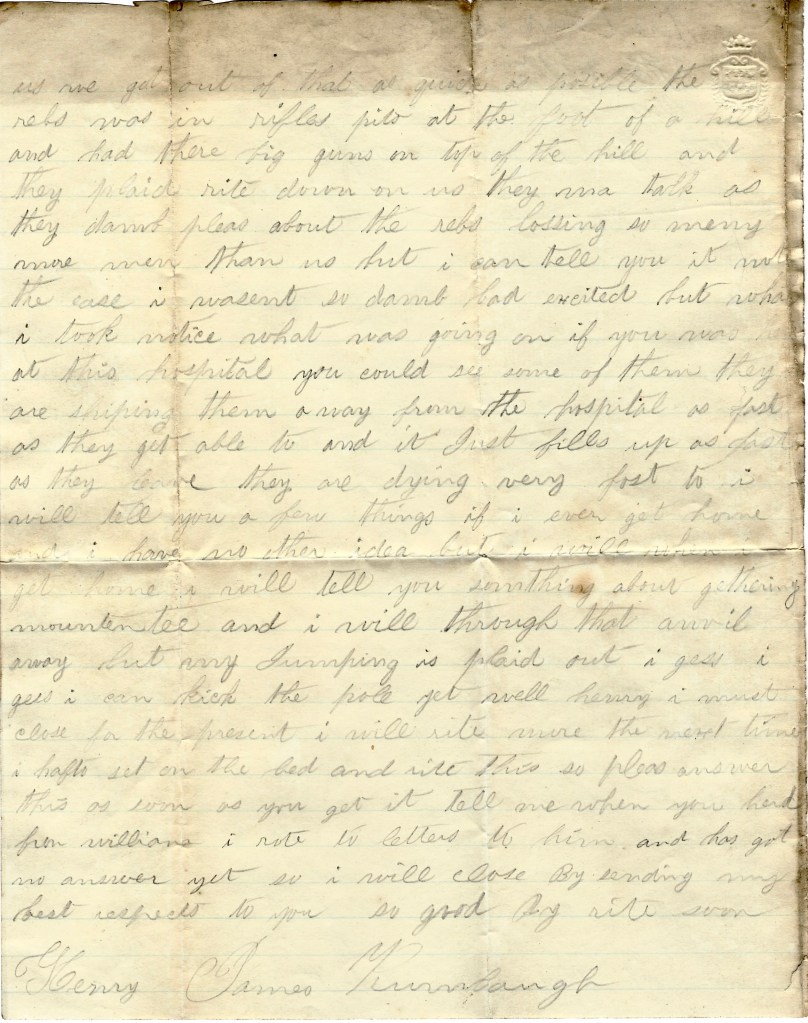 us we got out of that as quick as posible the
rebs was in rifles pits at the foot of a hill
and had there big guns on top of the hill and
they plaid rite down on us they ma talk as
they damb pleas about the rebs lossing so meny
more men than us but i can tell you it not
the case i wasent so damb bad excited but what
i took notice what was going on if you was
at this hospital you could see some of them they
are shiping them away from the hospital as fast
as they get able to and it Just fills up as fast
as they leave they are dying very fast to i
will tell you a few things if i ever get home
and i have no other idea but i will when i
get home i will tell you somthing about gethering
mounten tee and i will through that anvil
away but my Jumping is plaid out i gess i
gess i can kick the pole yet well henry i must
close for the present i will rite more the next time
i hafto set on the bed and rite this so pleas answer
this as soon as you get it tell me when you herd
from williams i rote to letters to him and has got
no answer yet so i will close By sending my
best respects to you so good By rite soon
Henry James